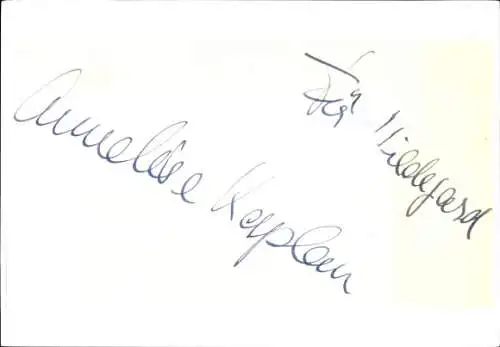 Für Hildegard
Anneliese Kaplan